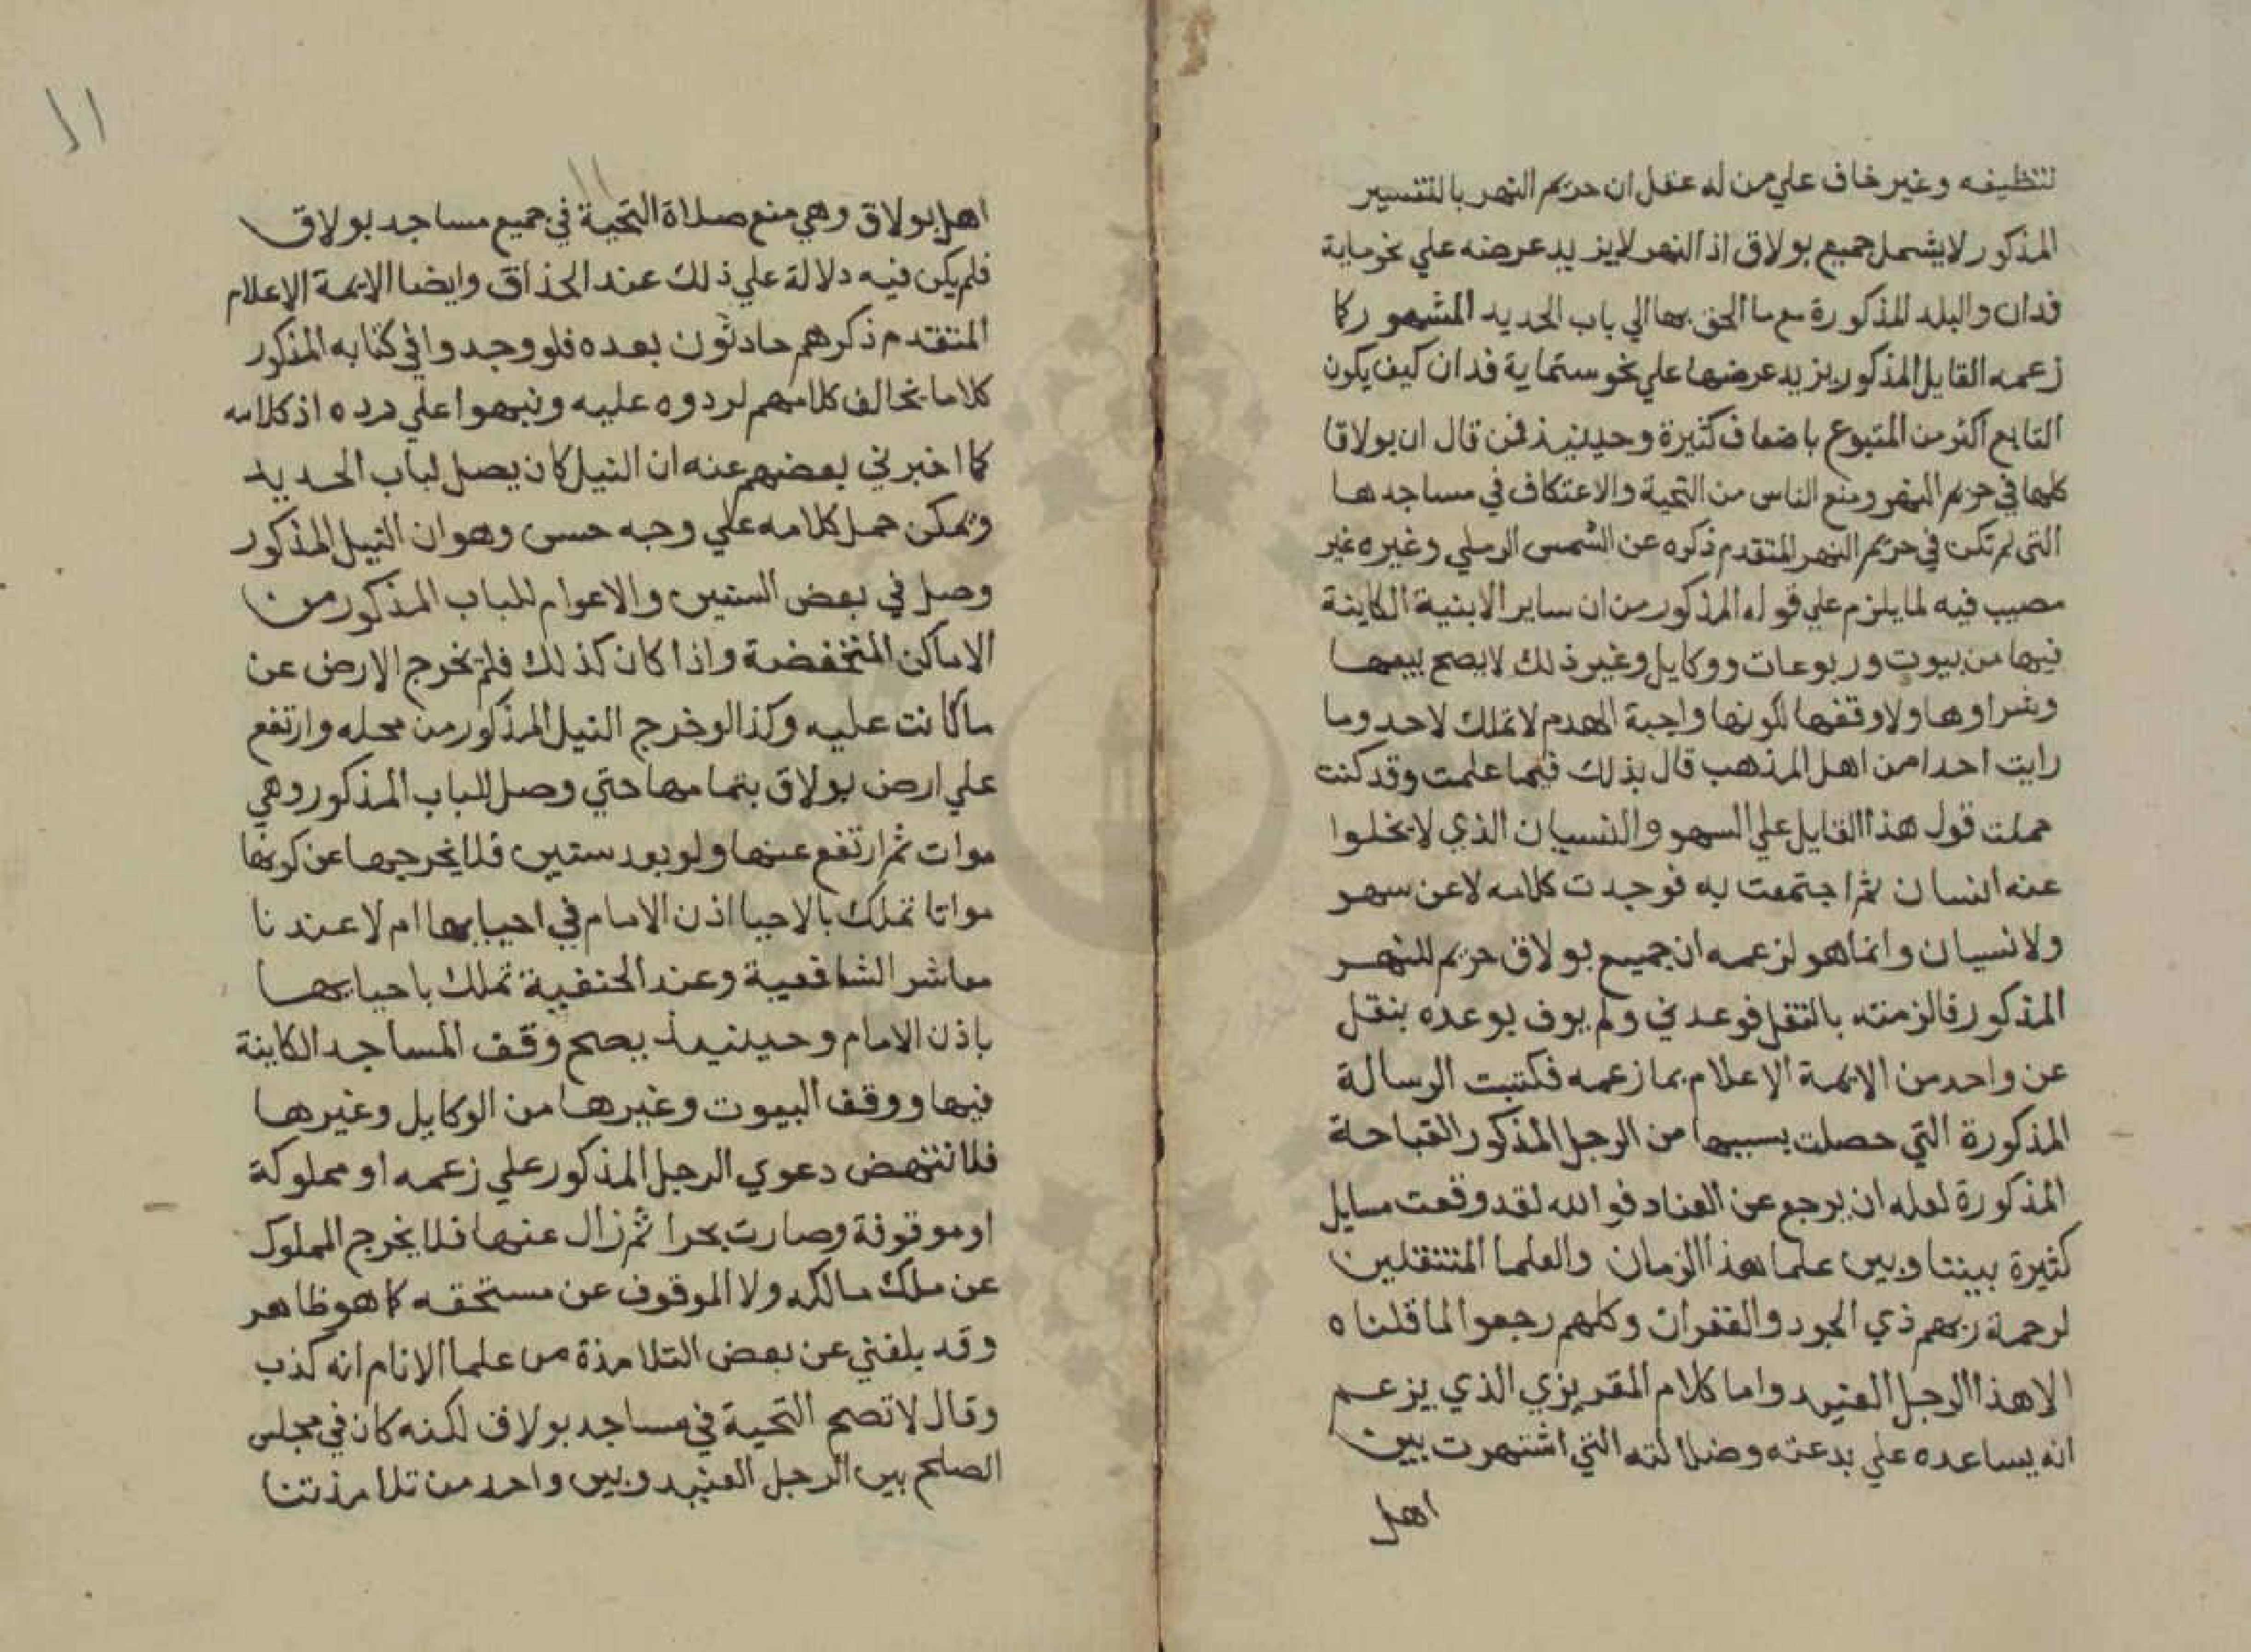 لتنظيفه وغير خاف علي من له عقل ان حريم النهر بالتفسير
المذكور لا يشمل جميع بولاق اذ النهر لا يزيد عرضه علي نحو ماية
فدان والبلد المذكورة مع ما الحق بها الي باب الحديد المشهور كما
زعمه القايل المذكور يزيد عرضها علي نحو ستماية فدان كيف يكون
التابع اكثر من المتبوع باضعاف كثيرة وحينيذ فمن قال ان بولاقا
كلها في حريم النهر ومنع الناس من التحية والاعتكاف في مساجدها
التي لم تكن في حريم النهر المتقدم ذكره عن الشمس الرملي وغيره غير
مصيب فيه لما يلزم علي قوله المذكور من ان ساير الابنية الكاينة
فيها من بيوت وربوعات ووكايل وغير ذلك لا يصح بيعها
وشراوها ولا وقفها لكونها واجبة الهدم لا تملك لاحد وما
رايت احدا من اهل المذهب قال بذلك فيما علمت وقد كنت
حملت قول هذا القايل علي السهو والنسيان الذي لا يخلوا
عنه انسان ثم اجتمعت به فوجدت كلامه لا عن سهو
ولا نسيان وانما هو لزعمه ان جميع بولاق حريم للنهر
المذكور فالزمته بالنقل فوعدني ولم يوف بوعده بنقل
عن واحد من الايمة الاعلام بما زعمه فكتبت الرسالة
المذكورة التي حصلت بسببها من الرجل المذكور القباحة
المذكورة لعله ان يرجع عن العناد فوالله لقد وقعت مسايل
كثيرة بيننا وبين علما هذا الزمان والعلما المنتقلين
لرحمة ربهم ذي الجود والغفران وكلهم رجعوا لما قلناه
الا هذا الرجل العنيد واما كلام المقريزي الذي يزعم
انه يساعده علي بدعته وضلالته التي اشتهرت بين
اهل
١١
١١
اهل بولاق وهي منع صلاة التحية في جميع مساجد بولاق
فلم يكن فيه دلالة علي ذلك عند الحذاق وايضا الايمة الاعلام
المتقدم ذكرهم حادثون بعده فلو وجدوا في كتابه المذكور
كلاما يخالف كلامهم لردوه عليه ونبهوا علي رده اذ كلامه
كما اخبرني بعضهم عنه ان النيل كان يصل لباب الحديد
ويمكن حمل كلامه علي وجه حسن وهو ان النيل المذكور
وصل في بعض السنين والاعوام للباب المذكور من
الاماكن المنخفضة واذا كان كذلك فلم يخرج الارض عن
ما كانت عليه وكذا لو خرج النيل المذكور من محله وارتفع
علي ارض بولاق بتمامها حتي وصل للباب المذكور وهي
موات ثم ارتفع عنها ولو بعد سنين فلا يخرجها عن كونها
مواتا تملك بالاحيا اذن الامام في احيايها ام لا عندنا
معاشر الشافعية وعند الحنفية تملك باحيايها
باذن الامام وحينيذ يصح وقف المساجد الكاينة
فيها ووقف البيوت وغيرها من الوكايل وغيرها
فلا تنتهض دعوي الرجل المذكور علي زعمه او مملوكة
او موقوفة وصارت بحرا ثم زال عنها فلا يخرج المملوك
عن ملك مالكه ولا الموقوف عن مستحقه كما هو ظاهر
وقد بلغني عن بعض التلامذة من علما الانام انه كذب
وقال لا تصح التحية في مساجد بولاق لكنه كان في مجلس
الصلح بين الرجل العنيد وبين واحد من تلامذتنا